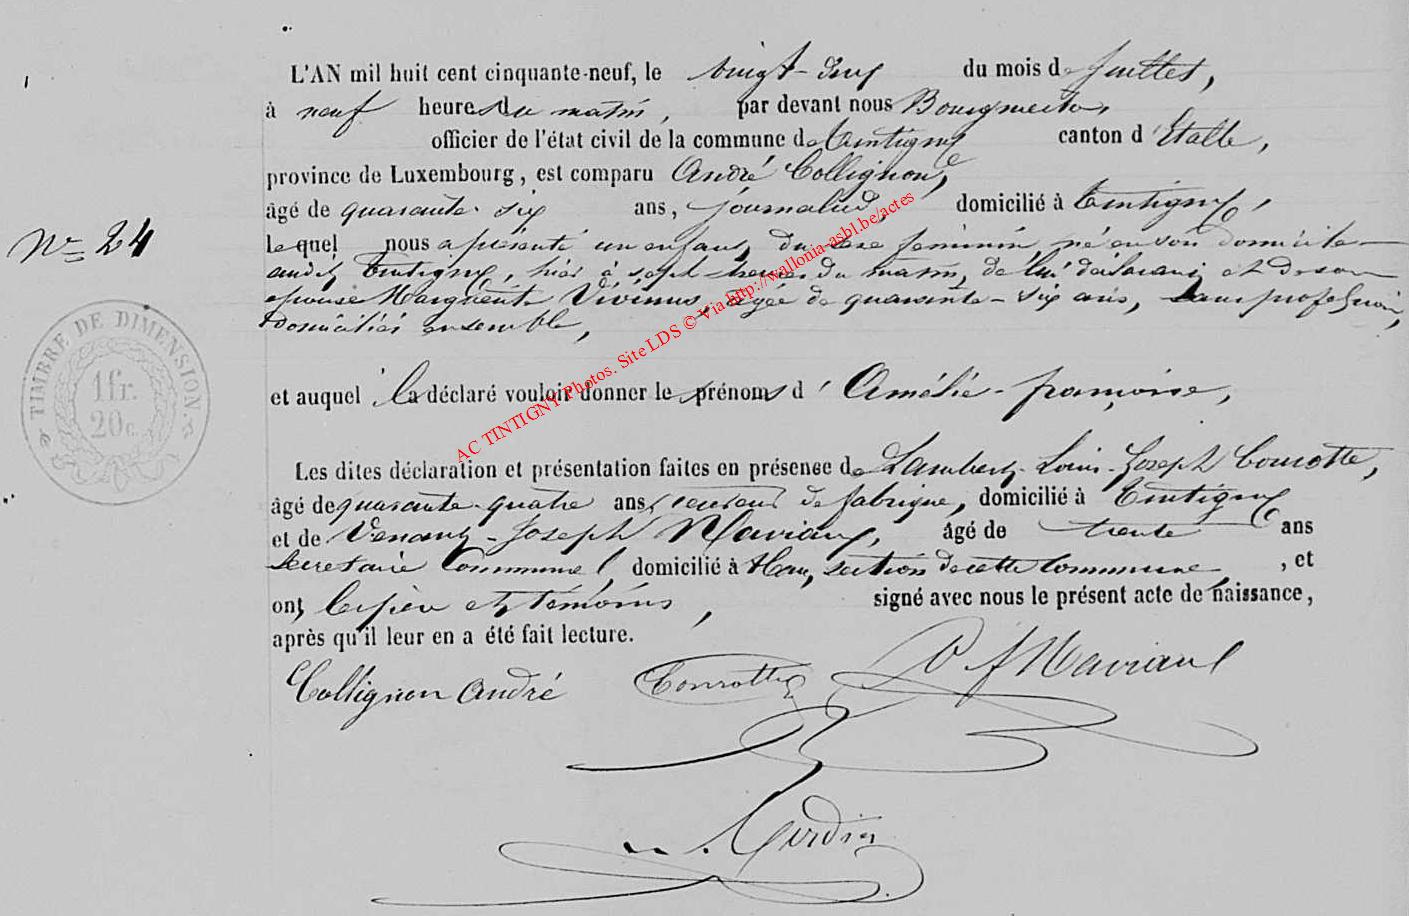 L'AN mil huit cent cinquante-neuf, le vingt-deux du mois de Juillet,
à neuf heures du matin, par devant nous Bourgmestre,
officier de l'état civil de la commune de Tintigny canton d'Etalle,
province de Luxembourg, est comparu André Collignon,
âgé de quarante-six ans, journalier, domicilié à Tintigny,
N° 24
lequel nous a présenté un enfant du sexe féminin né en son domicile
audit Tintigny, hier à sept heures du matin, de lui déclarant et de son
épouse Marguerite Vivinus, agée de quarante-six ans, sans profession,
domiciliés ensemble,
TIMBRE DE DIMENSION
1 fr.
20 c.
et auquel il a déclaré vouloir donner les prénoms d'Amélie-françoise,
AC TINTIGNY Photos. Site LDS © Via http://wallonia-asbl.be/actes
Les dites déclaration et présentation faites en présence de Lambert-Louis-Joseph Conrotte,
âgé de quarante-quatre ans, de fabrique, domicilié à Tintigny
et de Venant-Joseph Maviaux, âgé de trente ans
Secrétaire Communal, domicilié à Han, section de cette Commune, et
ont, le père et témoins, signé avec nous le présent acte de naissance,
après qu'il leur en a été fait lecture.
Collignon André Conrotte V J Maviaux